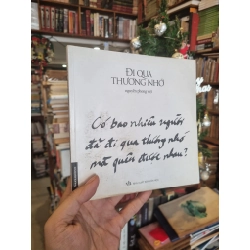 ĐI QUA
THƯƠNG NHỚ
nguyễn phong việt
Có bao nhiêu người
đã đi qua thương nhớ
mà quên được nhau?